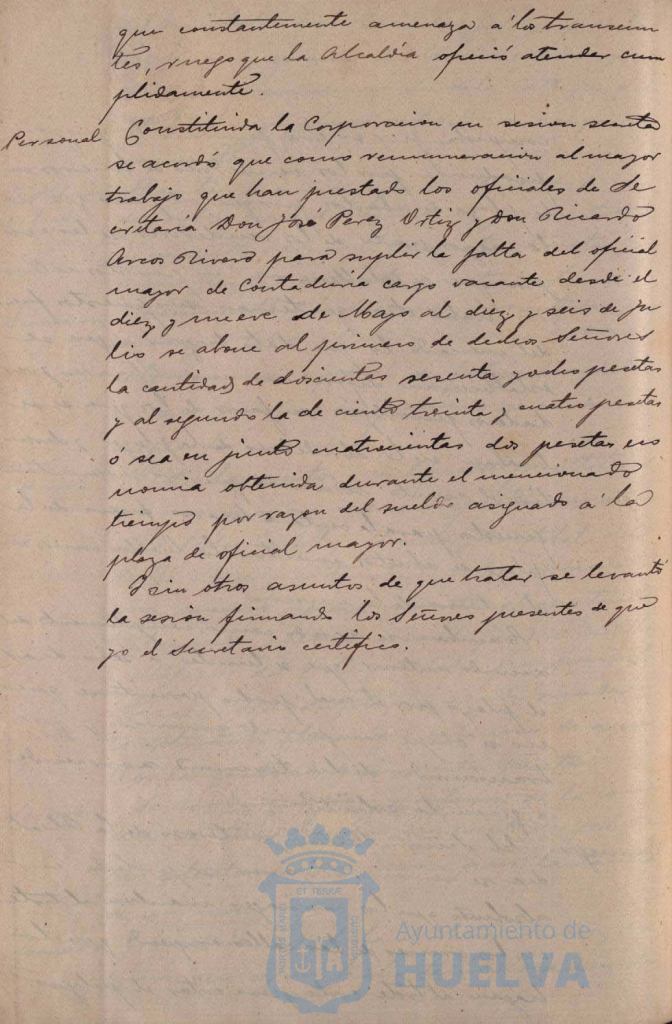 que constantemente amenaza á los transeun
tes, ruego que la Alcaldía ofreció atender cum
plidamente.
Personal
Constituida la Corporacion en sesion secreta
se acordó que como remuneracion al mayor
trabajo que han prestado los oficiales de Se
cretaría Don José Perez Ortiz y Don Ricardo
Arcos Rivero para suplir la falta del oficial
mayor de Contaduria cargo vacante desde el
diez y nueve de Mayo al diez y seis de Ju
lio se abone al primero de dichos Señores
la cantidad de doscientas sesenta y ocho pesetas
y al segundo la de ciento treinta y cuatro pesetas
ó sea en junto cuatrocientas dos pesetas eco
nomia obtenida durante el mencionado
tiempo por razon del sueldo asignado á la
plaza de oficial mayor.
Y sin otros asuntos de que tratar se levantó
la sesión firmando los Señores presentes de que
yo el Secretario certifico.
PORTUS MARIS ET TERRÆ CUSTODIA
Ayuntamiento de
HUELVA